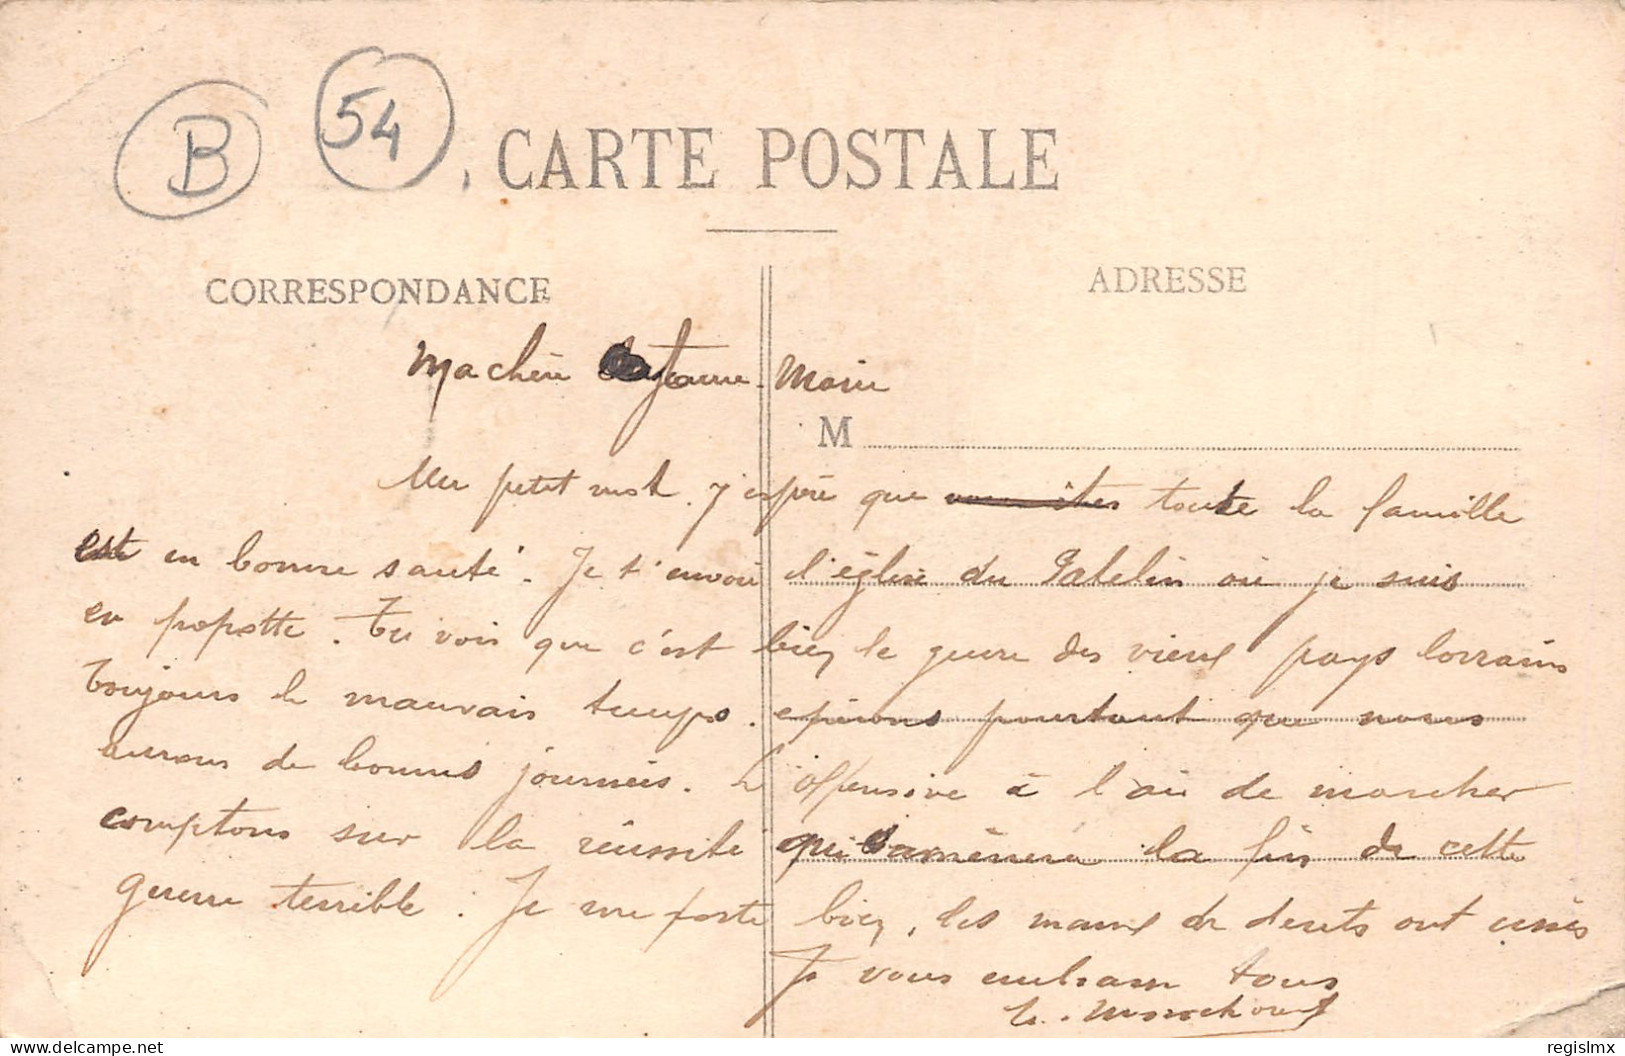 B
54
CARTE POSTALE
CORRESPONDANCE
ADRESSE
Ma chère Jeanne-Marie
M
Un petit mot. J'espère que toute la famille
est en bonne santé. Je t'envoie l'église du où je suis
en popotte. Tu vois que c'est bien le genre des vieux pays lorrains
Toujours le mauvais temps. espérons pourtant que nous
aurons de bonnes journées. L'offensive à l'air de marcher
comptons sur la réussite qui amènera la fin de cette
guerre terrible. Je me porte bien, les maux de dents ont cessés
Je vous embrasse tous
regislmx
delcampe.net